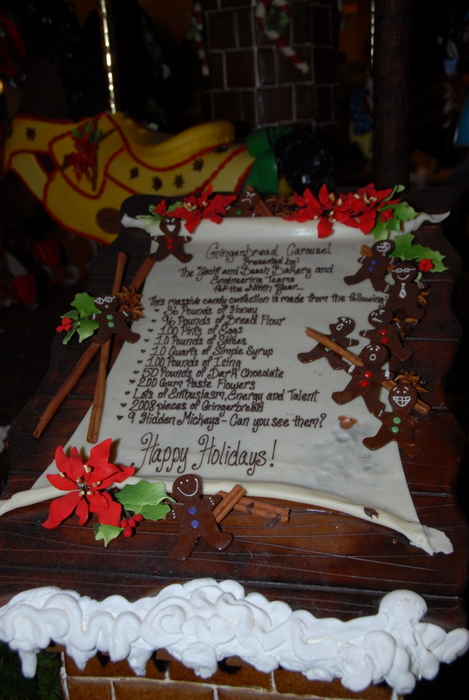 Gingerbread Carousel
Presented by:
The Yacht and Beach Bakery and
Engineering Teams
This massive candy confection is made from the following:
36 Pounds of Honey
96 Pounds of Bread Flour
100 Pints of Eggs
10 Pounds of Spices
10 Quarts of Simple Syrup
100 Pounds of Icing
50 Pounds of DarA Chocolate
200 Gum Paste Flowers
Lots of Enthusiasm, Energy and Talent
2008 pieces of Gringerbread
9 Hidden Mickeys - Can you see them?
Happy Holidays!